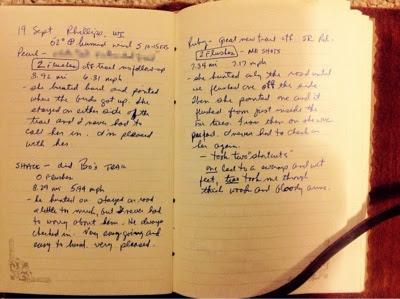 19 Sept Phillips, WI
62° @ humid wind 5 in SES
Pearl -
2 Flushes off trail no follow up
3.92 mi 6.31 mph
- she hunted hard and pointed
where the birds got up. She
stayed on either side of the
trail and I never had to
call her in. I'm pleased
with her.
SHADE - did Bo's TRAIL
0 Flushes
8.29 mi 5.94 mph
- he hunted on stayed on road
a little to much, but I never had
to worry about him. He always
checked in. Very easy going and
easy to hand. very pleased.
Ruby - great new trail off SR Rd.
2 Flushes - NO SHOTS
7.34 mi 7.17 mph
- she hunted only the road until
we flushed one off the side
then she pointed one and it
flushed from just inside the
trees. From then on she was
perfect. I never had to check on
her again.
- took two "shortcuts"
one lead to a swamp and wet
feet, two took me though
thick woods and bloody arms.